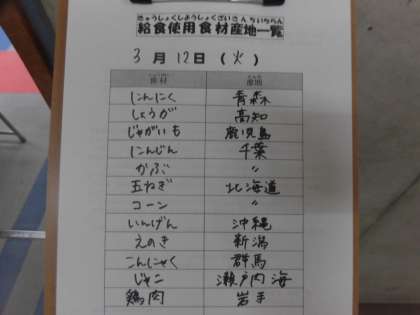 きゅうしょくしようしょくざいさんちいちらん
給食使用食材産地一覧
3月12日(火)
食材 産地
にんにく 青森
しょうが 高知
じゃがいも 鹿児島
にんじん 千葉
かぶ 〃
玉ねぎ 北海道
コーン 〃
いんげん 沖縄
えのき 新潟
こんにゃく 群馬
じゃこ 瀬戸内海
鶏肉 岩手